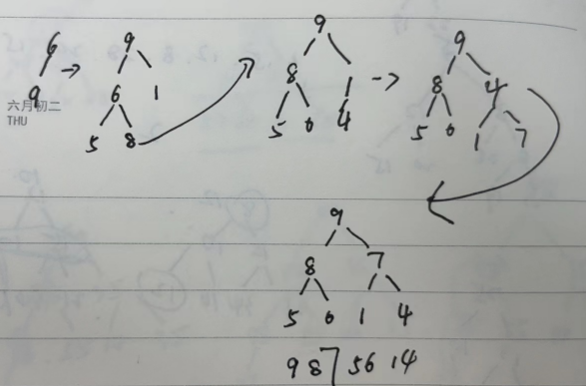 6 9 9
9 → 6 1 8 1 → 8 4
5 8 5 6 4 5 6 1 7
六月初二
THU
9
8 7
5 6 1 4
9 8 7 5 6 1 4